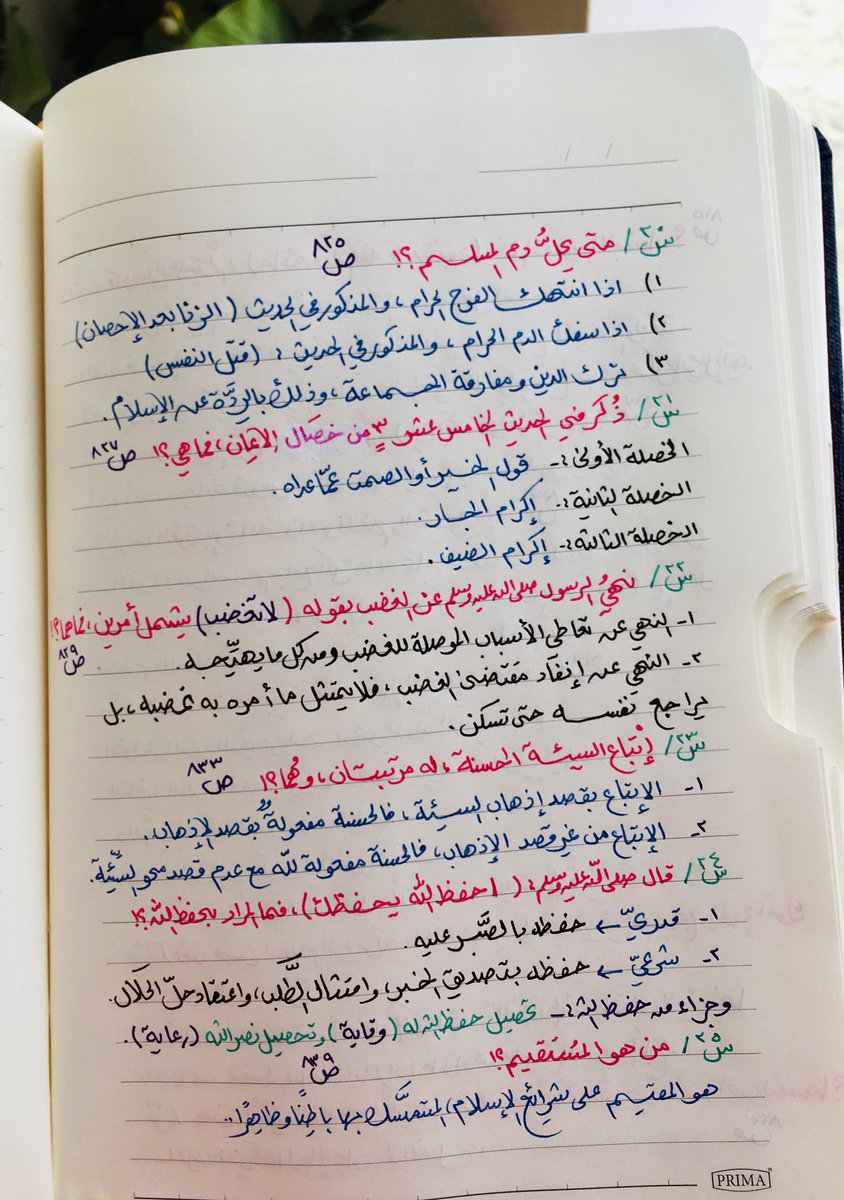 / /
س٢٠/ متى يحلُّ دم المسلم؟! ص٨٢٥
١) اذا انتهك الفرج الحرام، والمذكور في الحديث (الزنا بعد الإحصان)
٢) اذا سفك الدم الحرام، والمذكور في الحديث: (قتل النفس)
٣) ترك الدين ومفارقة الجماعة، وذلك بالرِدَّة عن الإسلام.
س٢١/ ذُكر في الحديث الخامس عشر ٣ من خصال الإيمان، فما هي؟! ص٨٢٧
الخصلة الأولى:- قول الخير أو الصمت عمّا عداه.
الخصلة الثانية:- إكرام الجار.
الخصلة الثالثة:- إكرام الضيف.
س٢٢/ نهيُ الرسول صلى الله عليه وسلم عن الغضب بقوله (لا تغضب) يشمل أمرين، فما هما؟! ص٨٢٩
١- النهي عن تعاطي الأسباب الموصلة للغضب ومن كل ما يهيّجه.
٢- النهي عن إنفاد مقتضى الغضب، فلا يمتثل ما أمره به غضبه، بل
يراجع نفسه حتى تسكن.
س٢٣/ إتباع السيئة الحسنة، له مرتبتان، وهُما؟! ص٨٣٣
١- الإتباع بقصد إذهاب السيئة، فالحسنة مفعولةٌ بقصد الإذهاب.
٢- الإتباع من غير قصد الإذهاب، فالحسنة مفعولة للّه مع عدم قصد محو السيِّئة.
س٢٤/ قال صلى اللّه عليه وسلم: (احفظ اللّه يحفظك)، فما المراد بحفظ اللّه؟!
١- قدريّ ← حفظه بالصَّبر عليه.
٢- شرعيّ ← حفظه بتصديق الخبر، وامتثال الطَّلب، واعتقاد حلّ الحلَال.
وجزاء من حفظ اللّه:- تحصيل حفظ اللّه له (وقاية) وتحصيل نصر اللّه (رعاية).
س٢٥/ من هو المستقيم؟! ص٨٣٩
هو المقيم على شرائع الإسلام، المتمسِّك بها باطِنًا وظاهِرًا..
PRIMA